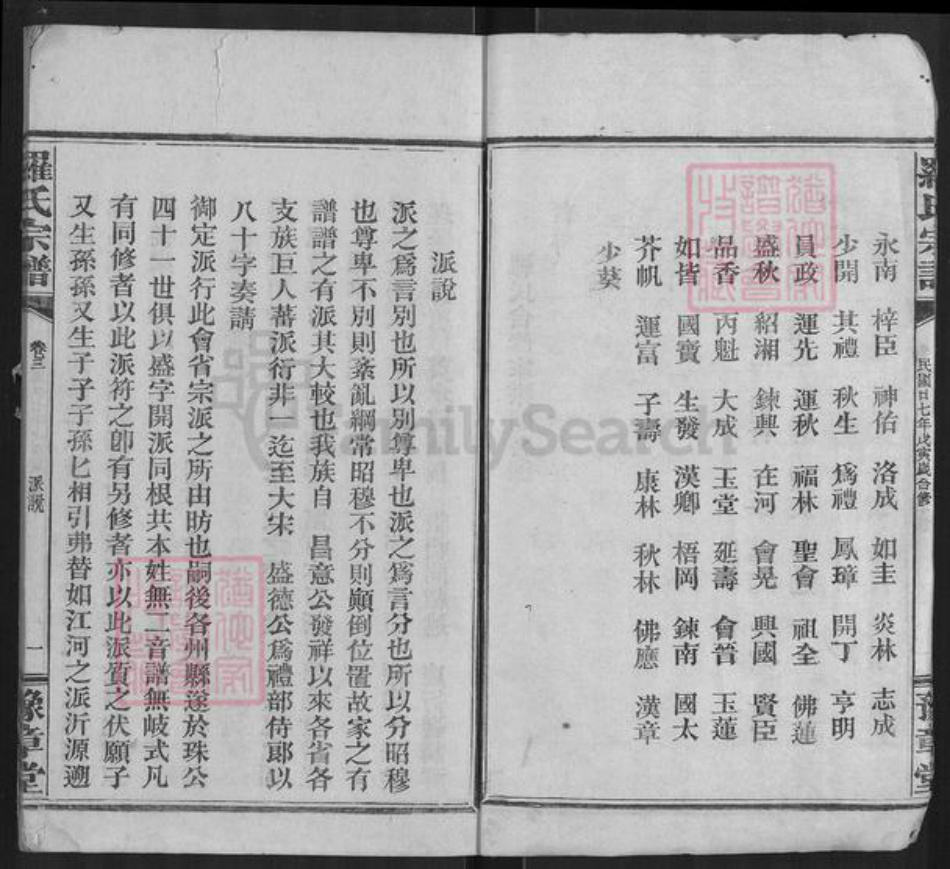 羅氏宗譜
民國廿七年戊寅歲合修
豫章堂
永南 梓臣 神佑 洛成 如圭 炎林 志成
少開 其禮 秋生 爲禮 鳳璋 開丁 亨明
員政 運先 運秋 福林 聖會 祖全 佛蓮
盛秋 紹湘 鍊興 在河 會晃 興國 賢臣
品香 丙魁 大成 玉堂 延壽 會晉 玉蓮
如皆 國寶 生發 漢卿 梧岡 鍊南 國太
芥帆 運富 子壽 康林 秋林 佛應 漢章
少葵
派說
派之爲言別也所以別尊卑也派之爲言分也所以分昭穆
也尊卑不別則紊亂綱常昭穆不分則顚倒位置故家之有
譜譜之有派其大較也我族自 昌意公發祥以來各省各
支族巨人蕃派衍非一迄至大宋 盛德公爲禮部侍郎以
八十字奏請
御定派行此會省宗派之所由昉也嗣後各州縣遂於珠公
四十一世俱以盛字開派同根共本姓無二音譜無岐式凡
有同修者以此派符之卽有另修者亦以此派質之伏願子
又生孫孫又生子子子孫匕相引弗替如江河之派沂源遡
羅氏宗譜
卷三
派說
一
豫章堂
FamilySearch